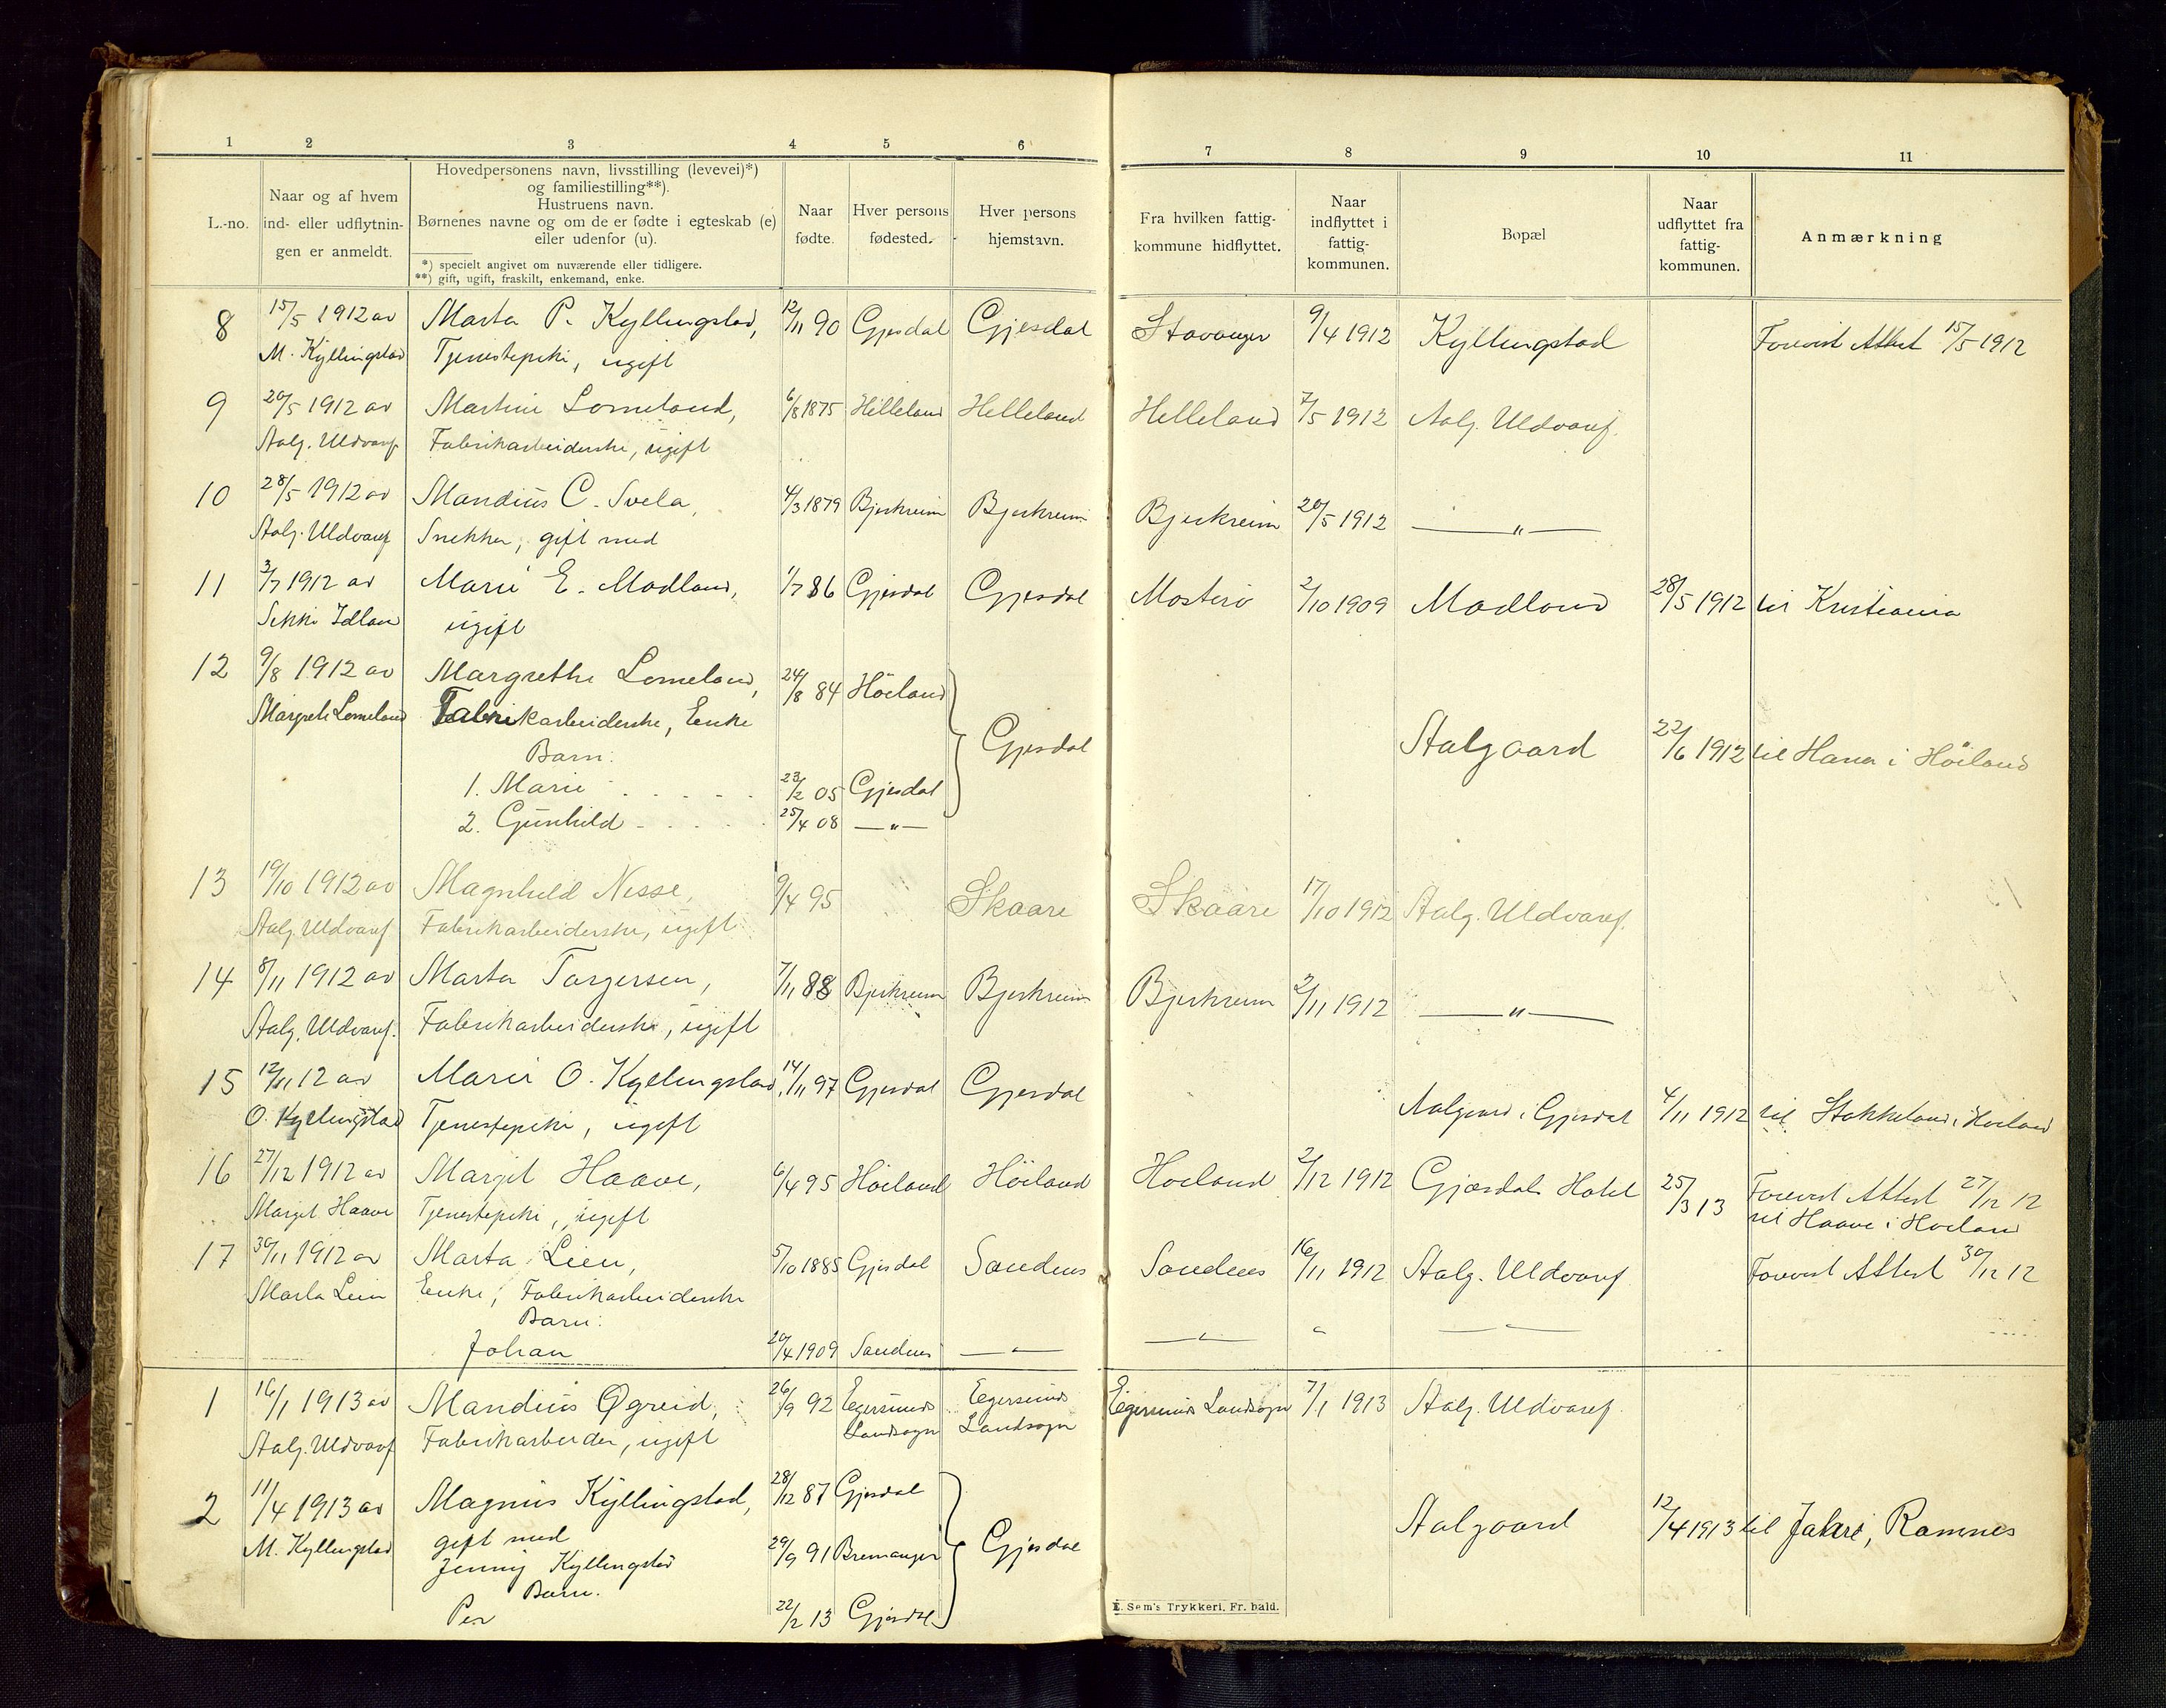 1 2 3 4 5 6 7 8 9 10 11
L.-no.
Naar og af hvem
ind- eller udflytnin-
gen er anmeldt.
Hovedpersonens navn, livsstilling (levevei)*)
og familiestilling**).
Hustruens navn.
Børnenes navne og om de er fødte i egteskab (e)
eller udenfor (u).
*) specielt angivet om nuværende eller tidligere.
**) gift, ugift, fraskilt, enkemand, enke.
Naar
fødte.
Hver persons
fødested.
Hver persons
hjemstavn.
Fra hvilken fattig-
kommune hidflyttet.
Naar
indflyttet i
fattig-
kommunen.
Bopæl
Naar
udflyttet fra
fattig-
kommunen.
Anmærkning
8 15/5 1912 av Marta P. Kyllingstad, 12/11 90 Gjesdal Gjesdal Stavanger 9/4 1912 Kyllingstad Forevist Attest 15/5 1912
M. Kyllingstad Tjenestepike, ugift
9 20/5 1912 av Martine Lomeland, 6/8 1875 Helleland Helleland Helleland 7/5 1912 Aalg. Uldvaref.
Aalg. Uldvaref Fabrikarbeiderske, ugift
10 28/5 1912 av Mandius C. Svela, 4/3 1879 Bjerkreim Bjerkreim Bjerkreim 20/5 1912 — " —
Aalg. Uldvaref Snekker, gift med
11 3/7 1912 av Marie E. Madland, 1/7 86 Gjesdal Gjesdal Mosterø 2/10 1909 Madland 28/5 1912 til Kristiania
Sekki Idland ugift
12 9/8 1912 av Margrethe Lomeland, 24/8 84 Höiland
Margrete Lomeland Fabrikarbeiderske, Enke Gjesdal Aalgaard 22/6 1912 til Hana i Höiland
Barn:
1. Marie 23/2 05 Gjesdal
2. Gunhild 25/4 08 — " —
13 19/10 1912 av Magnhild Nesse, 9/4 95 Skaare Skaare 17/10 1912 Aalg. Uldvaref.
Aalg. Uldvaref Fabrikarbeiderske, ugift
14 8/11 1912 av Marta Torgersen, 7/11 88 Bjerkreim Bjerkreim Bjerkreim 2/11 1912 — " —
Aalg. Uldvaref. Fabrikarbeiderske, ugift
15 12/11 12 av Marie O. Kyllingstad, 14/11 97 Gjesdal Gjesdal Aalgaard i Gjesdal 4/11 1912 til Stokkeland i Höiland
O. Kyllingstad Tjenestepike, ugift
16 27/12 1912 av Margit Haave, 6/4 95 Höiland Höiland Höiland 2/12 1912 Gjesdal Hotel 25/3 13 Forevist Attest 27/12 12
Margit Haave Tjenestepike, ugift til Haave i Höiland
17 30/11 1912 av Marta Lien, 5/10 1885 Gjesdal Sandnes Sandnes 16/11 1912 Aalg. Uldvaref Forevist Attest 30/12 12
Marta Lien Enke, Fabrikarbeiderske
Barn:
Johan 20/4 1909 Sandnes — " — — " — " — " —
1 16/1 1913 av Mandius Øgreid, 26/9 92 Egersunds Egersunds Egersunds Landsogn 7/1 1913 Aalg. Uldvaref
Aalg. Uldvaref Fabrikarbeider, ugift Landsogn Landsogn
2 11/4 1913 av Magnus Kyllingstad, 28/12 87 Gjesdal
M. Kyllingstad gift med Gjesdal Aalgaard 12/4 1913 til Jakre, Ramnes
Jenny Kyllingstad 29/9 91 Bremanger
Barn.
Per 22/2 13 Gjesdal
E. Sem's Trykkeri, Fr. hald.